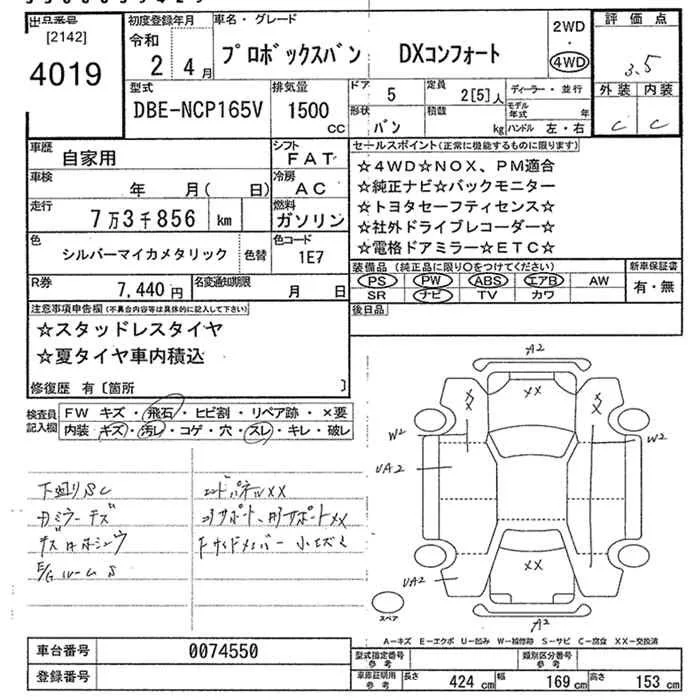 出品番号
[2142]
4019
初度登録年月
令和
2 4月
車名・グレード
プロボックスバン DXコンフォート
2WD
・
4WD
評価点
3.5
外装 内装
C C
型式
DBE-NCP165V
排気量
1500
cc
ドア 5
定員 2[5]人
ディーラー・並行
形状 バン
積数 kg
モデル年式 年
ハンドル 左・右
車歴 自家用
シフト FAT
車検 年 月( 日)
冷房 AC
走行 7万3千856 km
燃料 ガソリン
色 シルバーマイカメタリック 色替
色コード 1E7
R券 7,440円
名変通知期限 月 日
セールスポイント(正常に機能するものに限ります)
☆4WD☆NOX、PM適合
☆純正ナビ☆バックモニター
☆トヨタセーフティセンス☆
☆社外ドライブレコーダー☆
☆電格ドアミラー☆ETC☆
装備品(純正品に限り○をつけてください)
PS PW ABS エアB AW
SR ナビ TV カワ
新車保証書
有・無
後日品
注意事項申告欄(不具合内容等は具体的に記入して下さい)
☆スタッドレスタイヤ
☆夏タイヤ車内積込
修復歴 有〔箇所 〕
検査員
記入欄
FW キズ・飛石・ヒビ割・リペア跡・×要
内装 キズ・汚レ・コゲ・穴・スレ・キレ・破レ
下廻りSC
ガミラーキズ
E/Gルーム S
コアサポート、
XX
A2
XX
XX
XX
W2
W2
UA2
UA2
XX
A2
スペア
A-キズ E-エクボ U-凹み W-補修跡 S-サビ C-腐食 XX-交換済
車台番号 0074550
登録番号
型式指定番号
参考
類別区分番号
参考
車庫証明用
参考
長さ 424 cm 幅 169 cm 高さ 153 cm